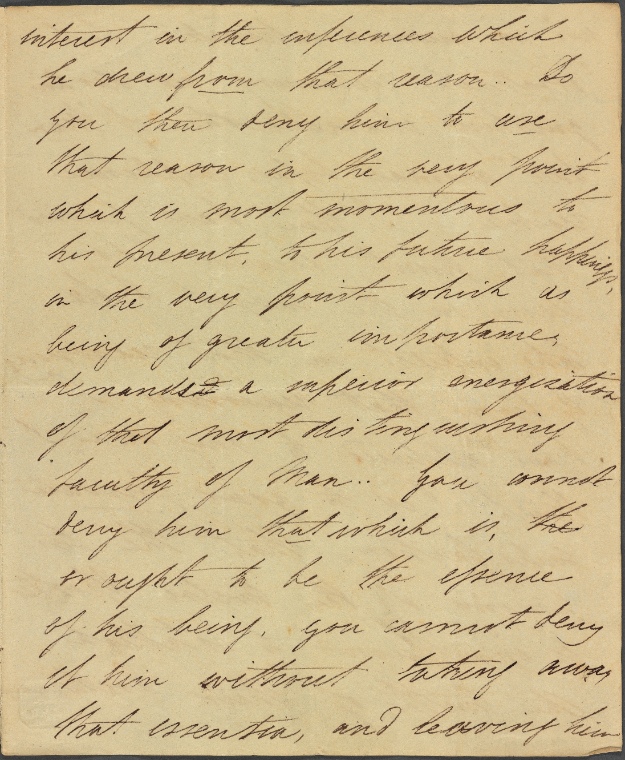 interest in the inferences which
he drew from that reason.. Do
you then deny him to use
that reason in the very point
which is most momentous to
his present, to his future happiness,
in the very point which as
being of greater importance,
demands a superior energization
of that most distinguishing
faculty of Man.. You cannot
deny him that which is, the
or ought to be the essence
of his being, you cannot deny
it him without taking away
that essentia, and leaving him